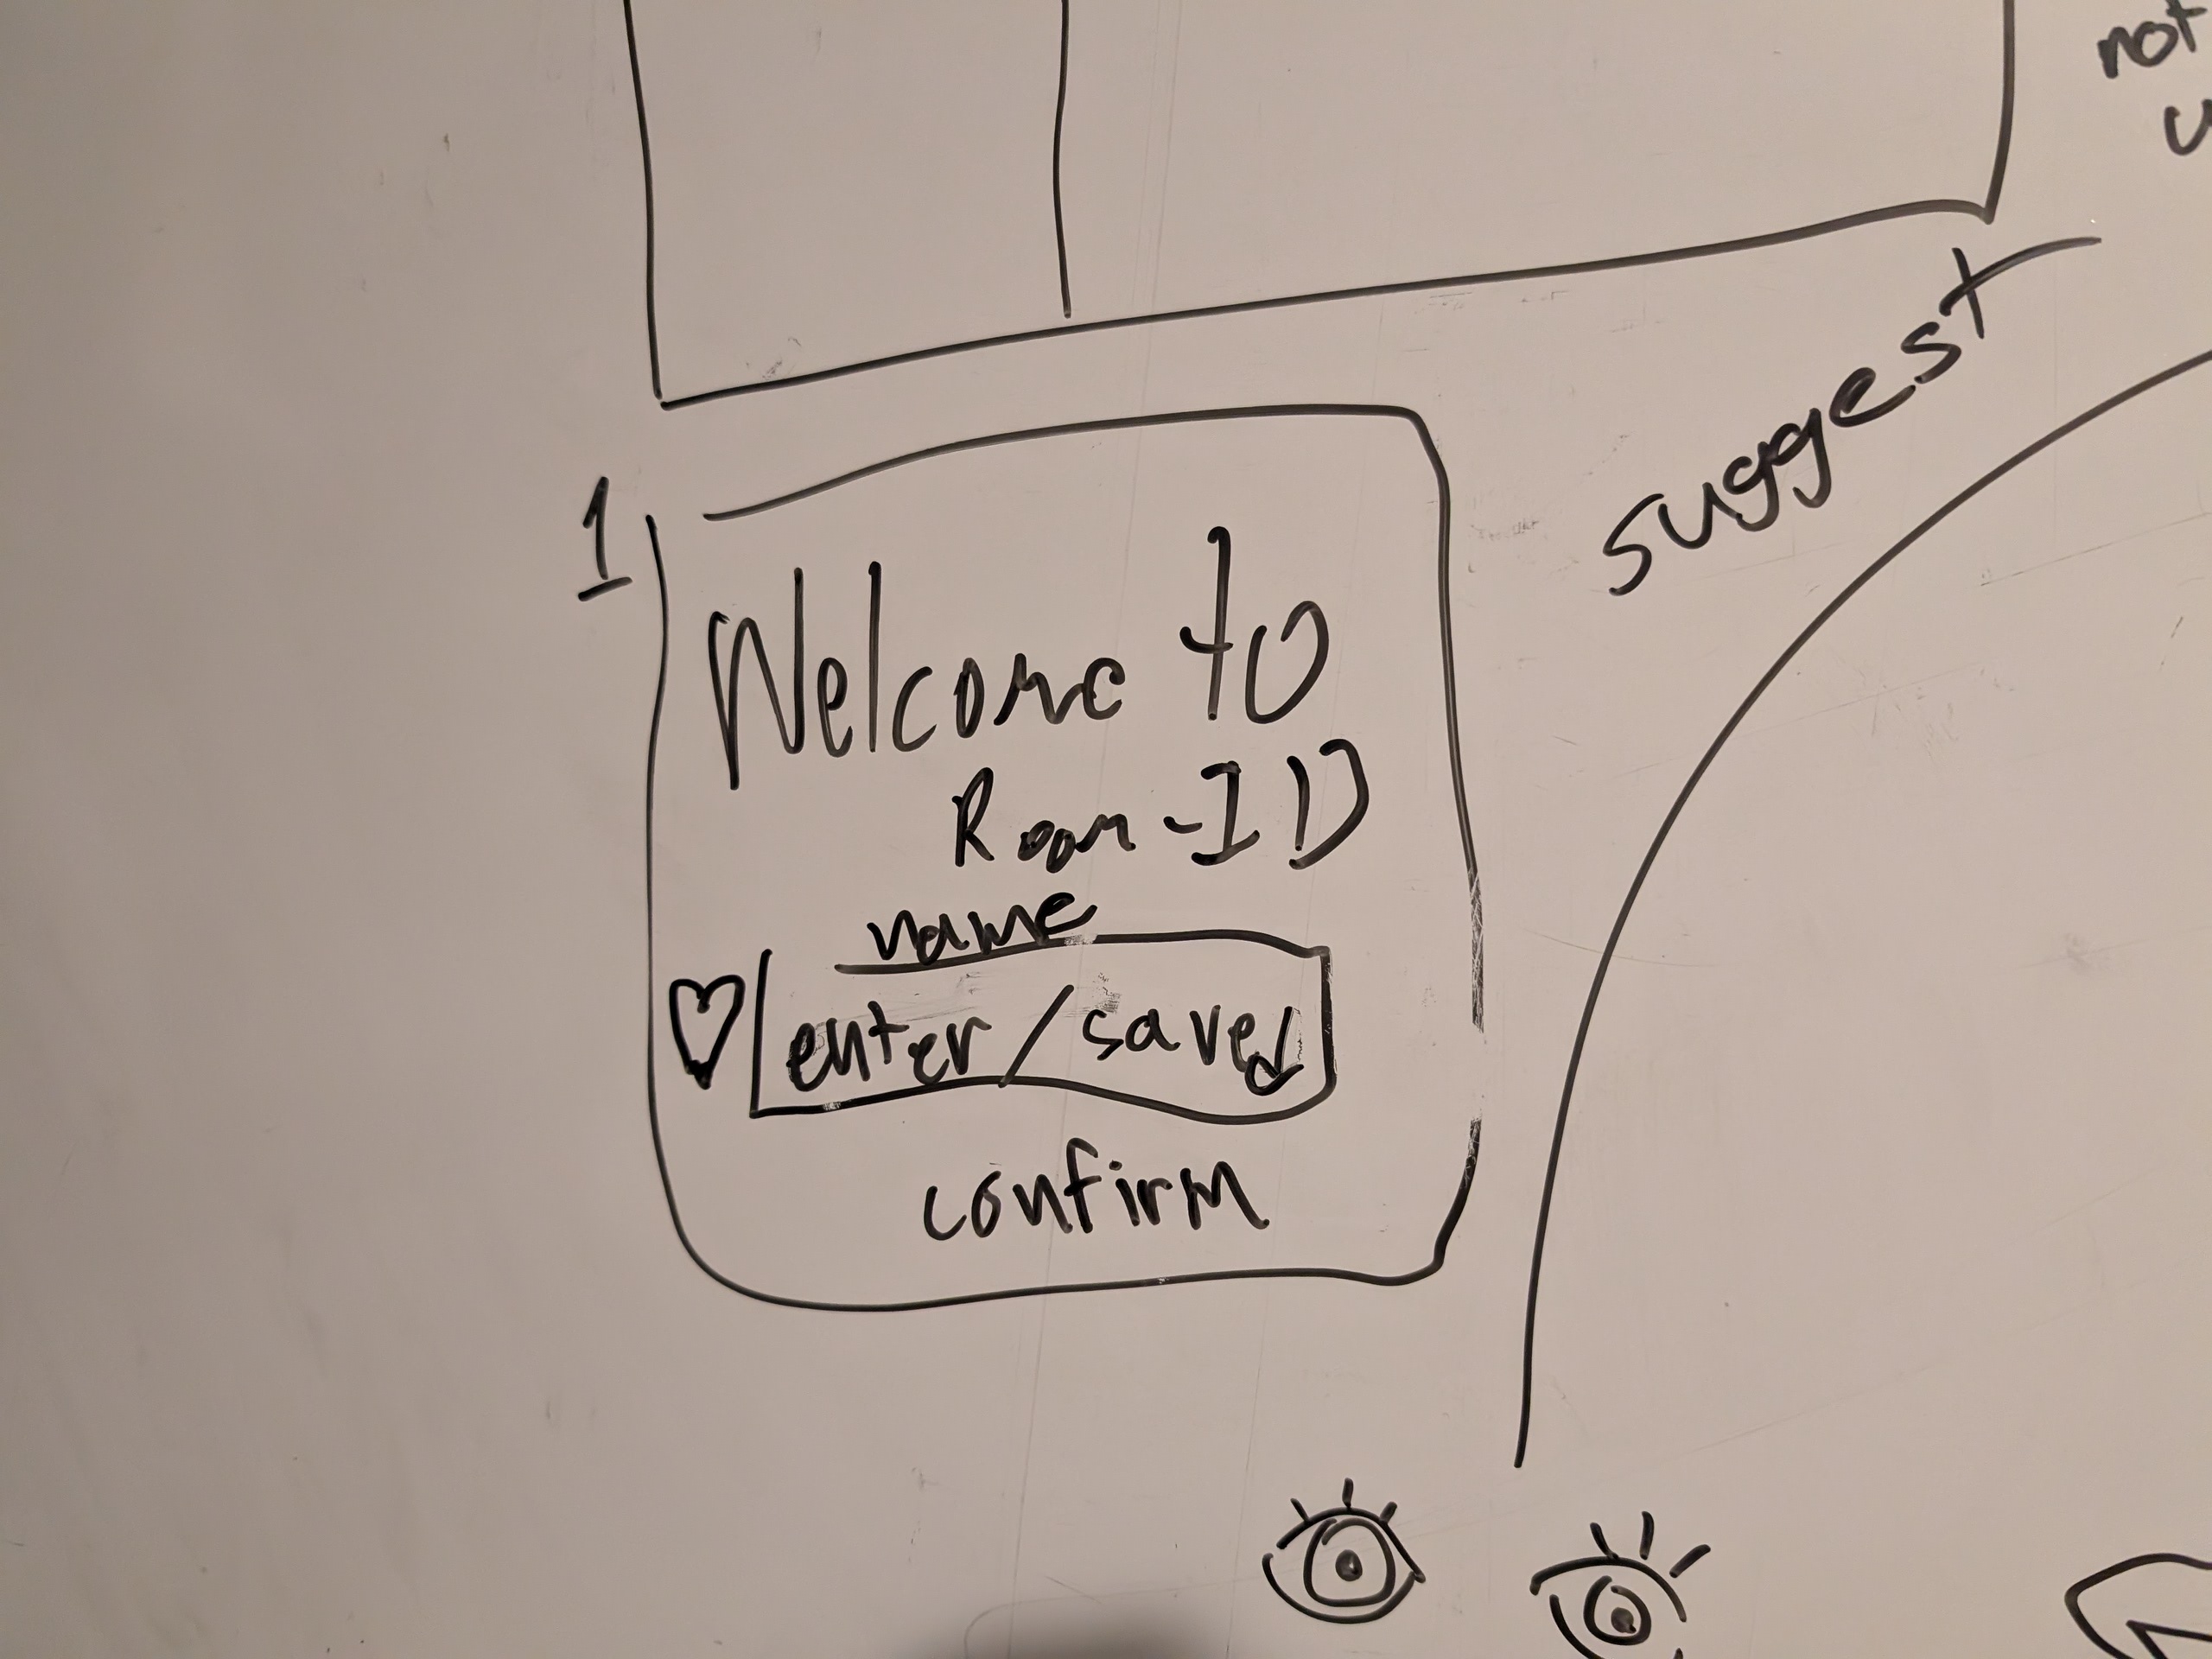 not
suggest
1
Welcome to
Room-ID
name
enter/saved
confirm